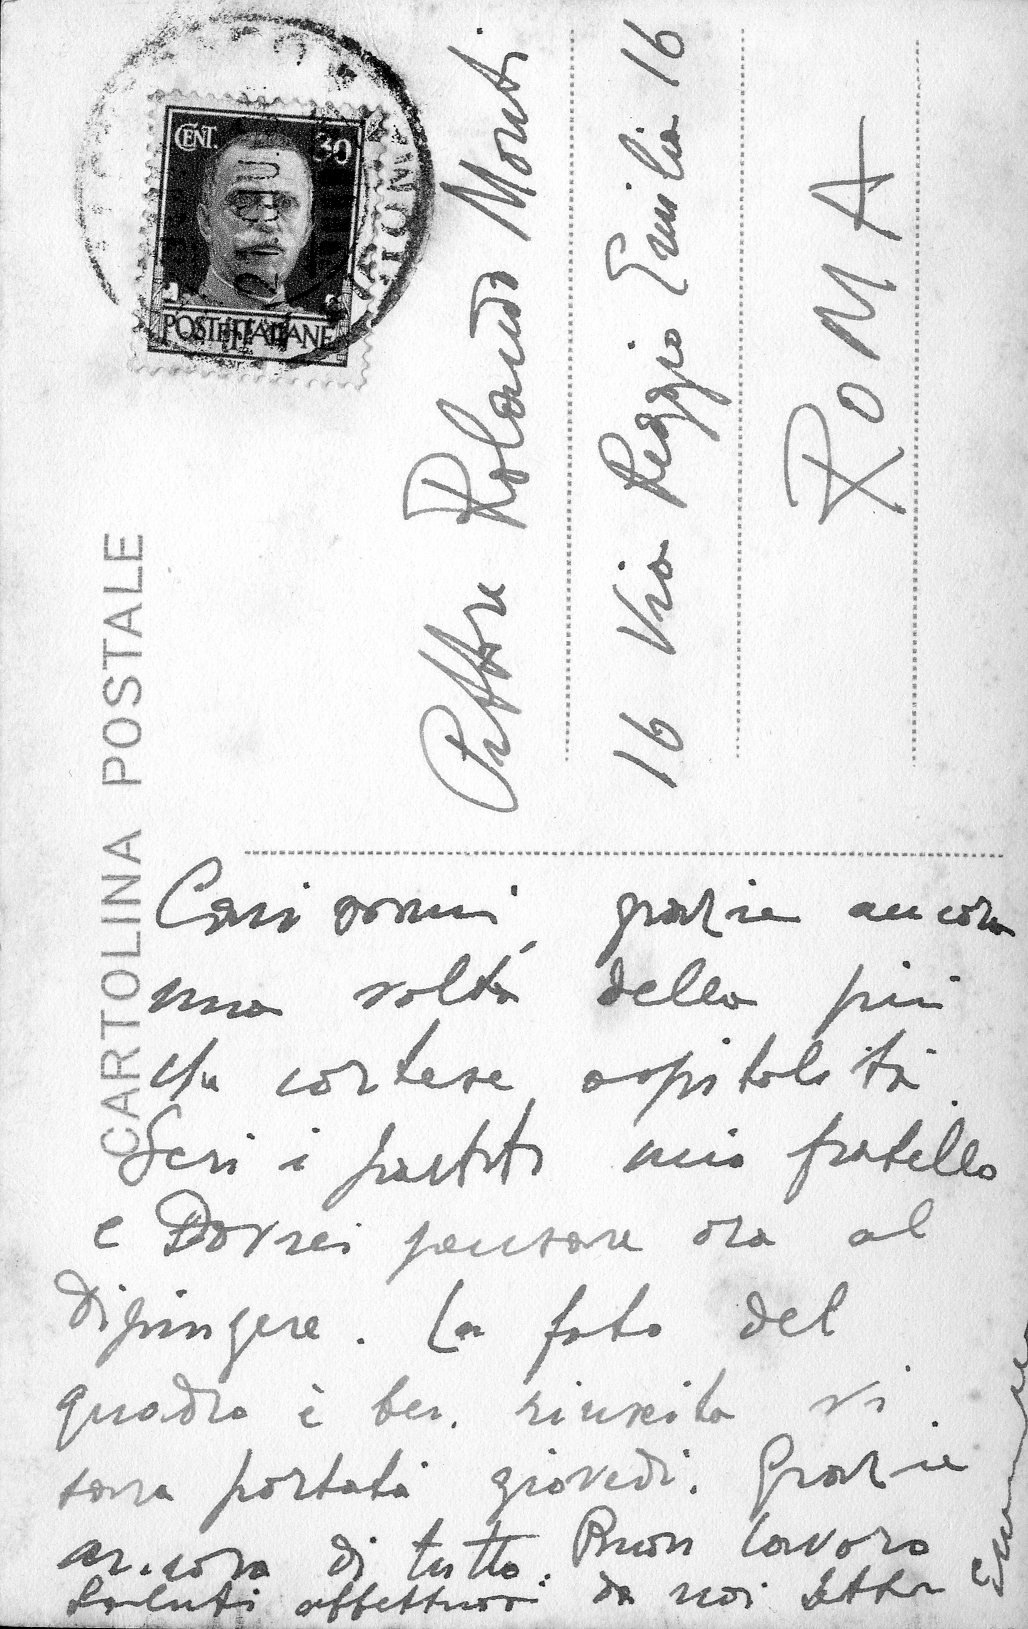 CARTOLINA POSTALE
CENT. 30
POSTE ITALIANE
Pittore Rolando Monti
16 Via Reggio Emilia 16
ROMA
Cari amici, grazie ancora
una volta della più
che cortese ospitalità.
Ieri è partito mio fratello
e Dovrei pensare ora al
dipingere. La foto del
quadro è ben riuscita vi
sara portata giovedi. Grazie
ancora di tutto. Buon lavoro
Saluti affettuosi da noi